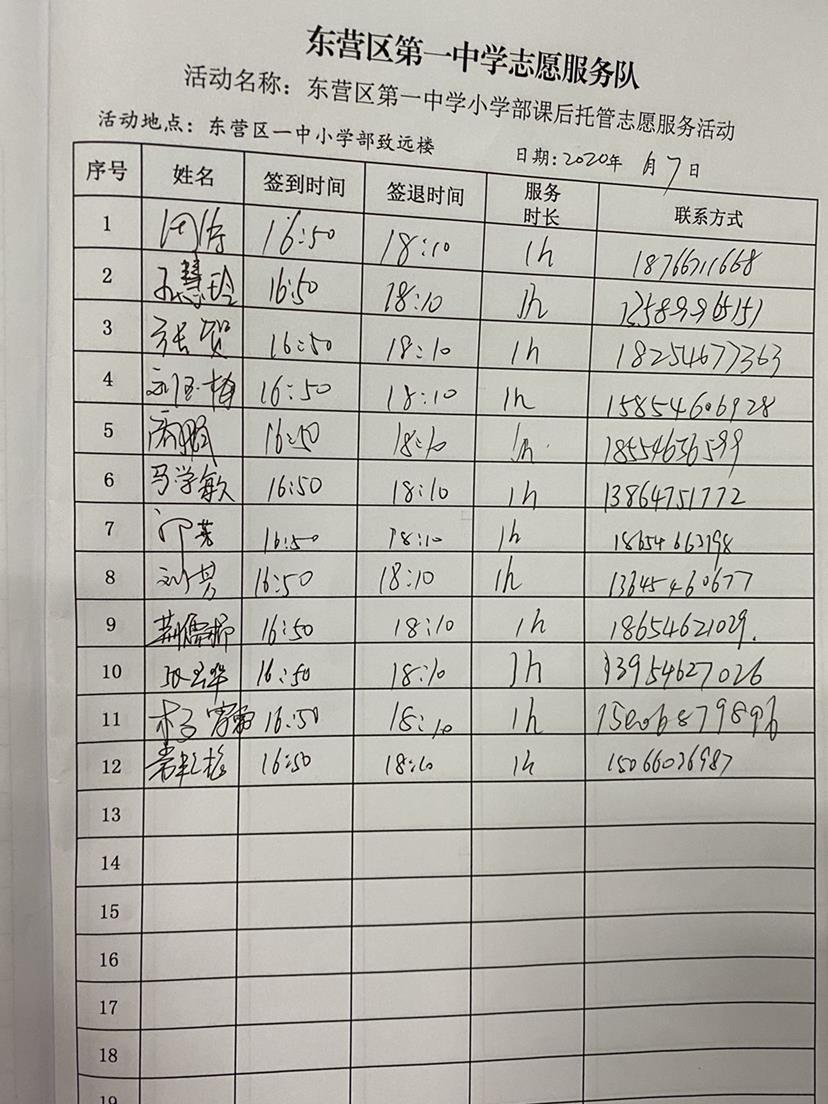 东营区第一中学志愿服务队
活动名称：东营区第一中学小学部课后托管志愿服务活动
活动地点：东营区一中小学部致远楼 日期：2020年 月7日
序号 姓名 签到时间 签退时间 服务时长 联系方式
1 16:50 18:10 1h
2 慧玲 16:50 18:10 1h
3 张贺 16:50 18:10 1h 18254677363
4 16:50 18:10 1h 15854606928
5 16:50 18:10 1h 18554636599
6 马学敏 16:50 18:10 1h 13864751772
7 16:50 18:10 1h 18654663198
8 16:50 18:10 1h 13645460677
9 16:50 18:10 1h 18654621029.
10 16:50 18:10 1h 13954627026
11 16:50 18:10 1h 15606879896
12 16:50 18:10 1h 15066026987
13
14
15
16
17
18
19